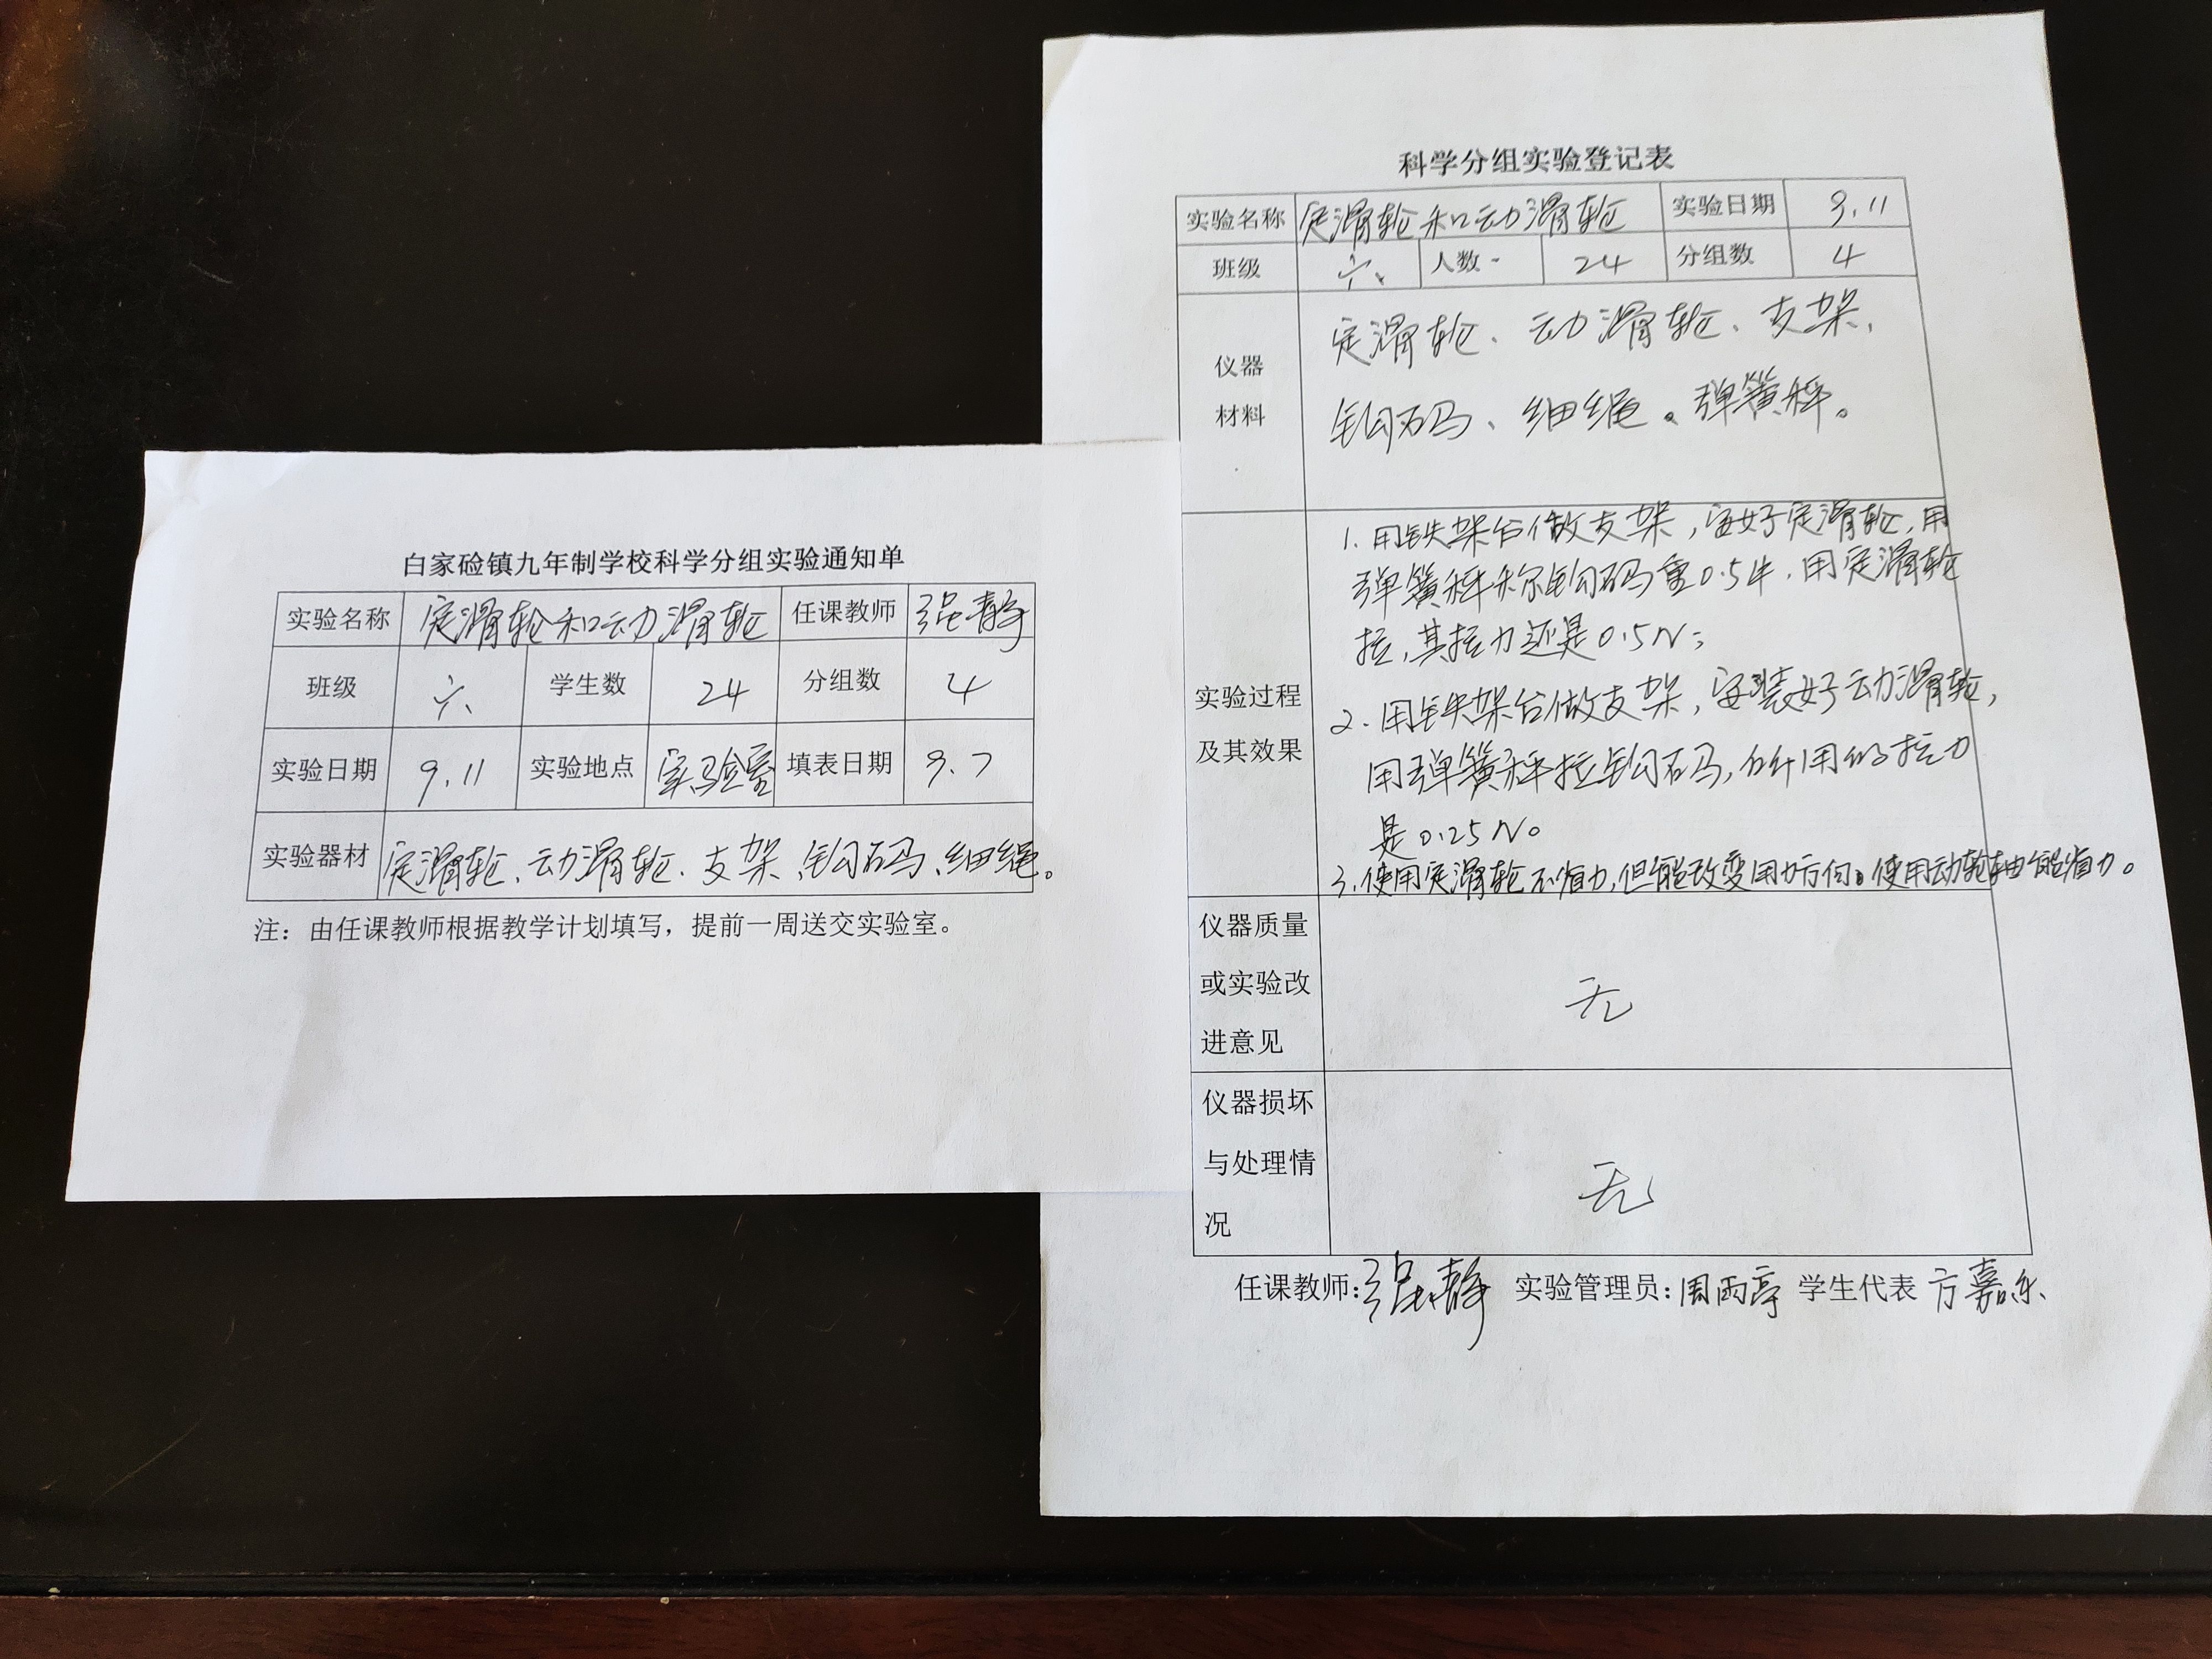 白家硷镇九年制学校科学分组实验通知单
实验名称 定滑轮和动滑轮 任课教师 强静
班级 六 学生数 24 分组数 4
实验日期 9.11 实验地点 实验室 填表日期 9.7
实验器材 定滑轮、动滑轮、支架、钩码、细绳。
注：由任课教师根据教学计划填写，提前一周送交实验室。
科学分组实验登记表
实验名称 定滑轮和动滑轮 实验日期 9.11
班级 六 人数 24 分组数 4
仪器
材料
定滑轮、动滑轮、支架、
钩码、细绳、弹簧秤。
实验过程
及其效果
1. 用铁架台做支架，安好定滑轮，用
弹簧秤称钩码重0.5牛，用定滑轮
拉，其拉力还是0.5N；
2. 用铁架台做支架，安装好动滑轮，
用弹簧秤拉钩码，所用的拉力
是0.25N。
3. 使用定滑轮不省力，但能改变用力方向。使用动轮轴能省力。
仪器质量
或实验改
进意见
无
仪器损坏
与处理情
况
无
任课教师：强静 实验管理员：周雨亭 学生代表 方嘉乐